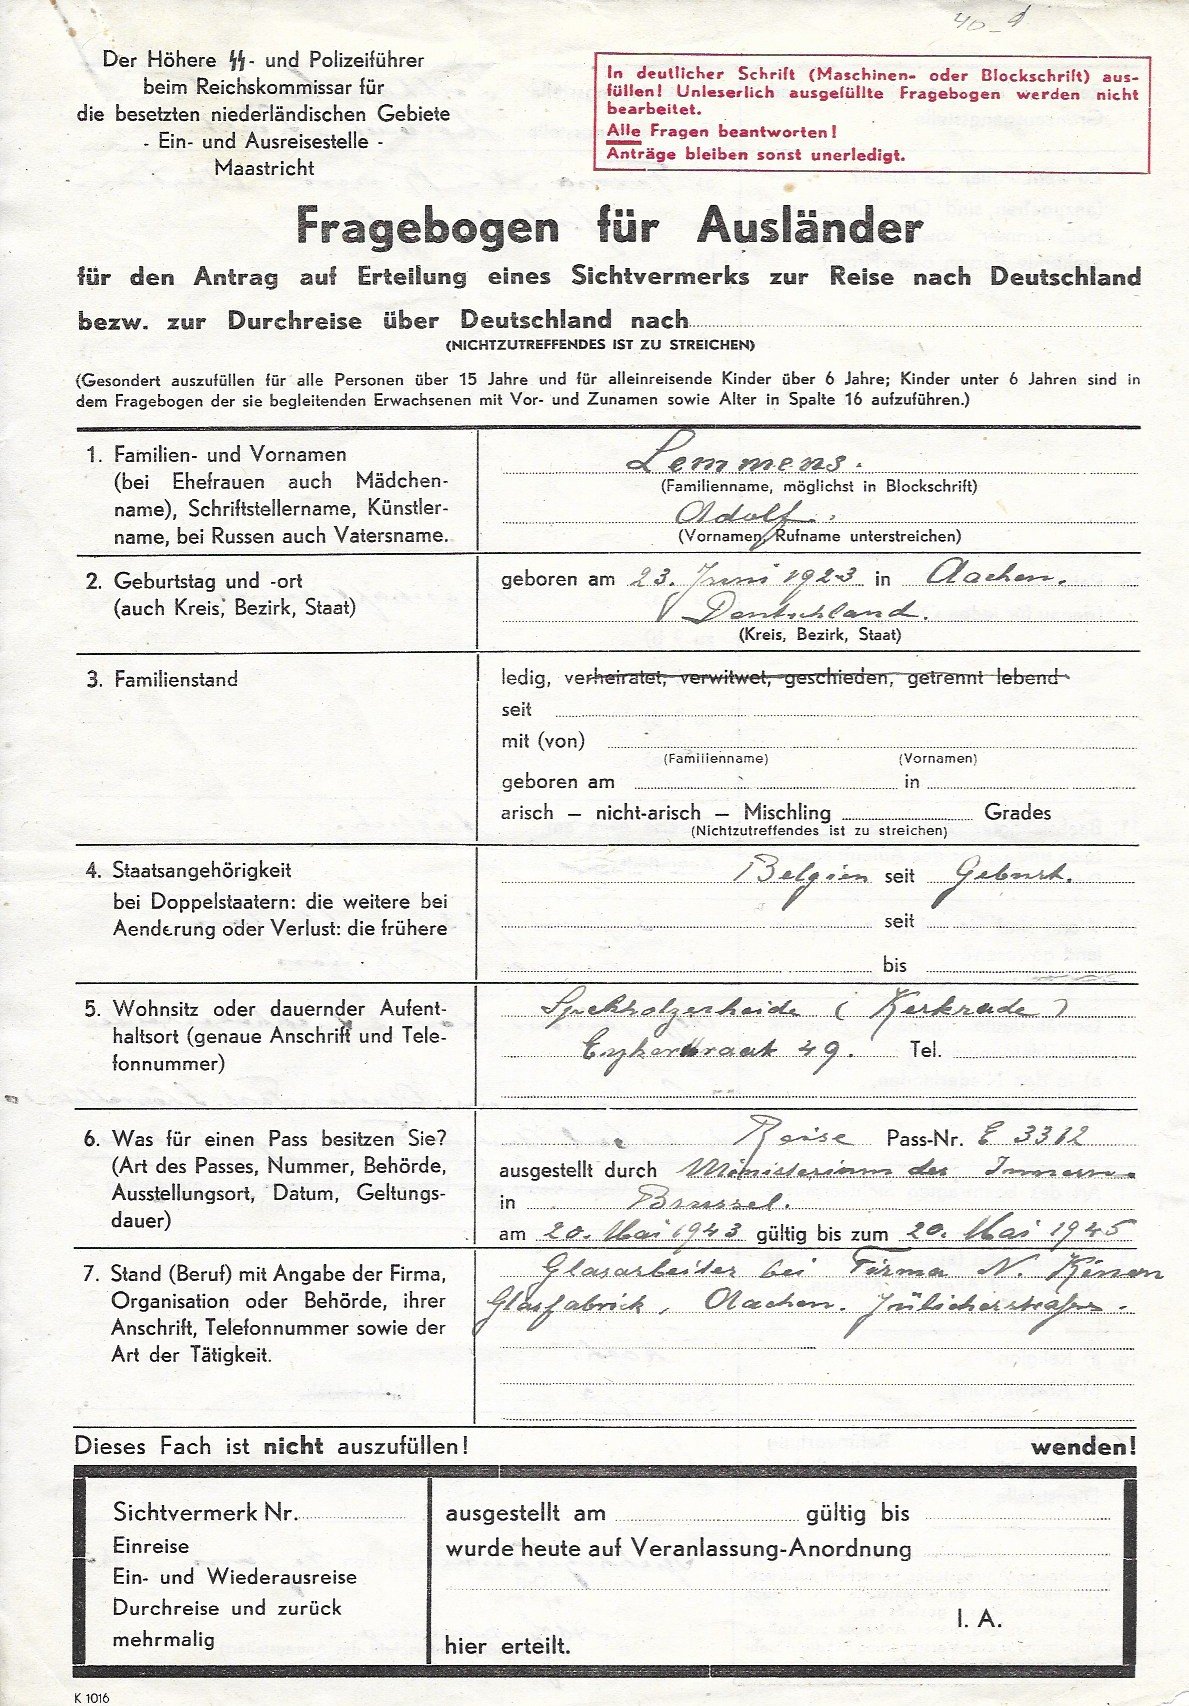 40
Der Höhere ᛋᛋ- und Polizeiführer
beim Reichskommissar für
die besetzten niederländischen Gebiete
- Ein- und Ausreisestelle -
Maastricht
In deutlicher Schrift (Maschinen- oder Blockschrift) aus-
füllen! Unleserlich ausgefüllte Fragebogen werden nicht
bearbeitet.
Alle Fragen beantworten!
Anträge bleiben sonst unerledigt.
Fragebogen für Ausländer
für den Antrag auf Erteilung eines Sichtvermerks zur Reise nach Deutschland
bezw. zur Durchreise über Deutschland nach
(NICHTZUTREFFENDES IST ZU STREICHEN)
(Gesondert auszufüllen für alle Personen über 15 Jahre und für alleinreisende Kinder über 6 Jahre; Kinder unter 6 Jahren sind in
dem Fragebogen der sie begleitenden Erwachsenen mit Vor- und Zunamen sowie Alter in Spalte 16 aufzuführen.)
1. Familien- und Vornamen
(bei Ehefrauen auch Mädchen-
name), Schriftstellername, Künstler-
name, bei Russen auch Vatersname.
Lemmens.
(Familienname, möglichst in Blockschrift)
Adolf.
(Vornamen, Rufname unterstreichen)
2. Geburtstag und -ort
(auch Kreis, Bezirk, Staat)
geboren am 23. Juni 1923 in Aachen.
Deutschland.
(Kreis, Bezirk, Staat)
3. Familienstand
ledig, verheiratet, verwitwet, geschieden, getrennt lebend
seit
mit (von)
(Familienname) (Vornamen)
geboren am in
arisch — nicht-arisch — Mischling Grades
(Nichtzutreffendes ist zu streichen)
4. Staatsangehörigkeit
bei Doppelstaatern: die weitere bei
Aenderung oder Verlust: die frühere
Belgien seit Geburt.
seit
bis
5. Wohnsitz oder dauernder Aufent-
haltsort (genaue Anschrift und Tele-
fonnummer)
Spekholzerheide (Kerkrade)
49. Tel.
6. Was für einen Pass besitzen Sie?
(Art des Passes, Nummer, Behörde,
Ausstellungsort, Datum, Geltungs-
dauer)
Reise Pass-Nr. E 3312
ausgestellt durch Ministerium des Innern.
in Brussel.
am 20. Mai 1943 gültig bis zum 20. Mai 1945
7. Stand (Beruf) mit Angabe der Firma,
Organisation oder Behörde, ihrer
Anschrift, Telefonnummer sowie der
Art der Tätigkeit.
Glasarbeiter bei Firma N. Kinon
Glasfabrick, Aachen. Jülicherstrasse.
Dieses Fach ist nicht auszufüllen!
wenden!
Sichtvermerk Nr.
Einreise
Ein- und Wiederausreise
Durchreise und zurück
mehrmalig
ausgestellt am gültig bis
wurde heute auf Veranlassung-Anordnung
I. A.
hier erteilt.
K 1016